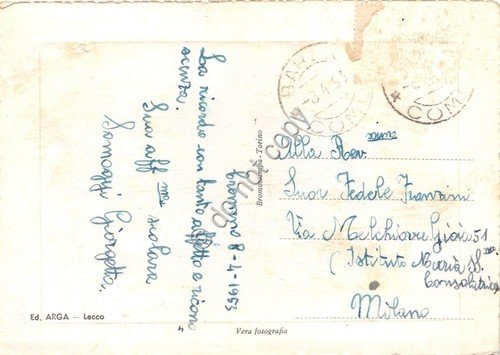 8-4-1953
La ricordo con tanto affetto e ricono-
scenza.
Sua aff.ma scolara
Giorgetta.
Alla Rev.
Suor Fedele Franzini
Via Melchiorre Gioia 51
(Istituto Maria SS.
Consolatrice
Milano
COMO
COMO
Bromostampa - Torino
Ed. ARGA — Lecco
Vera fotografia
do not copy